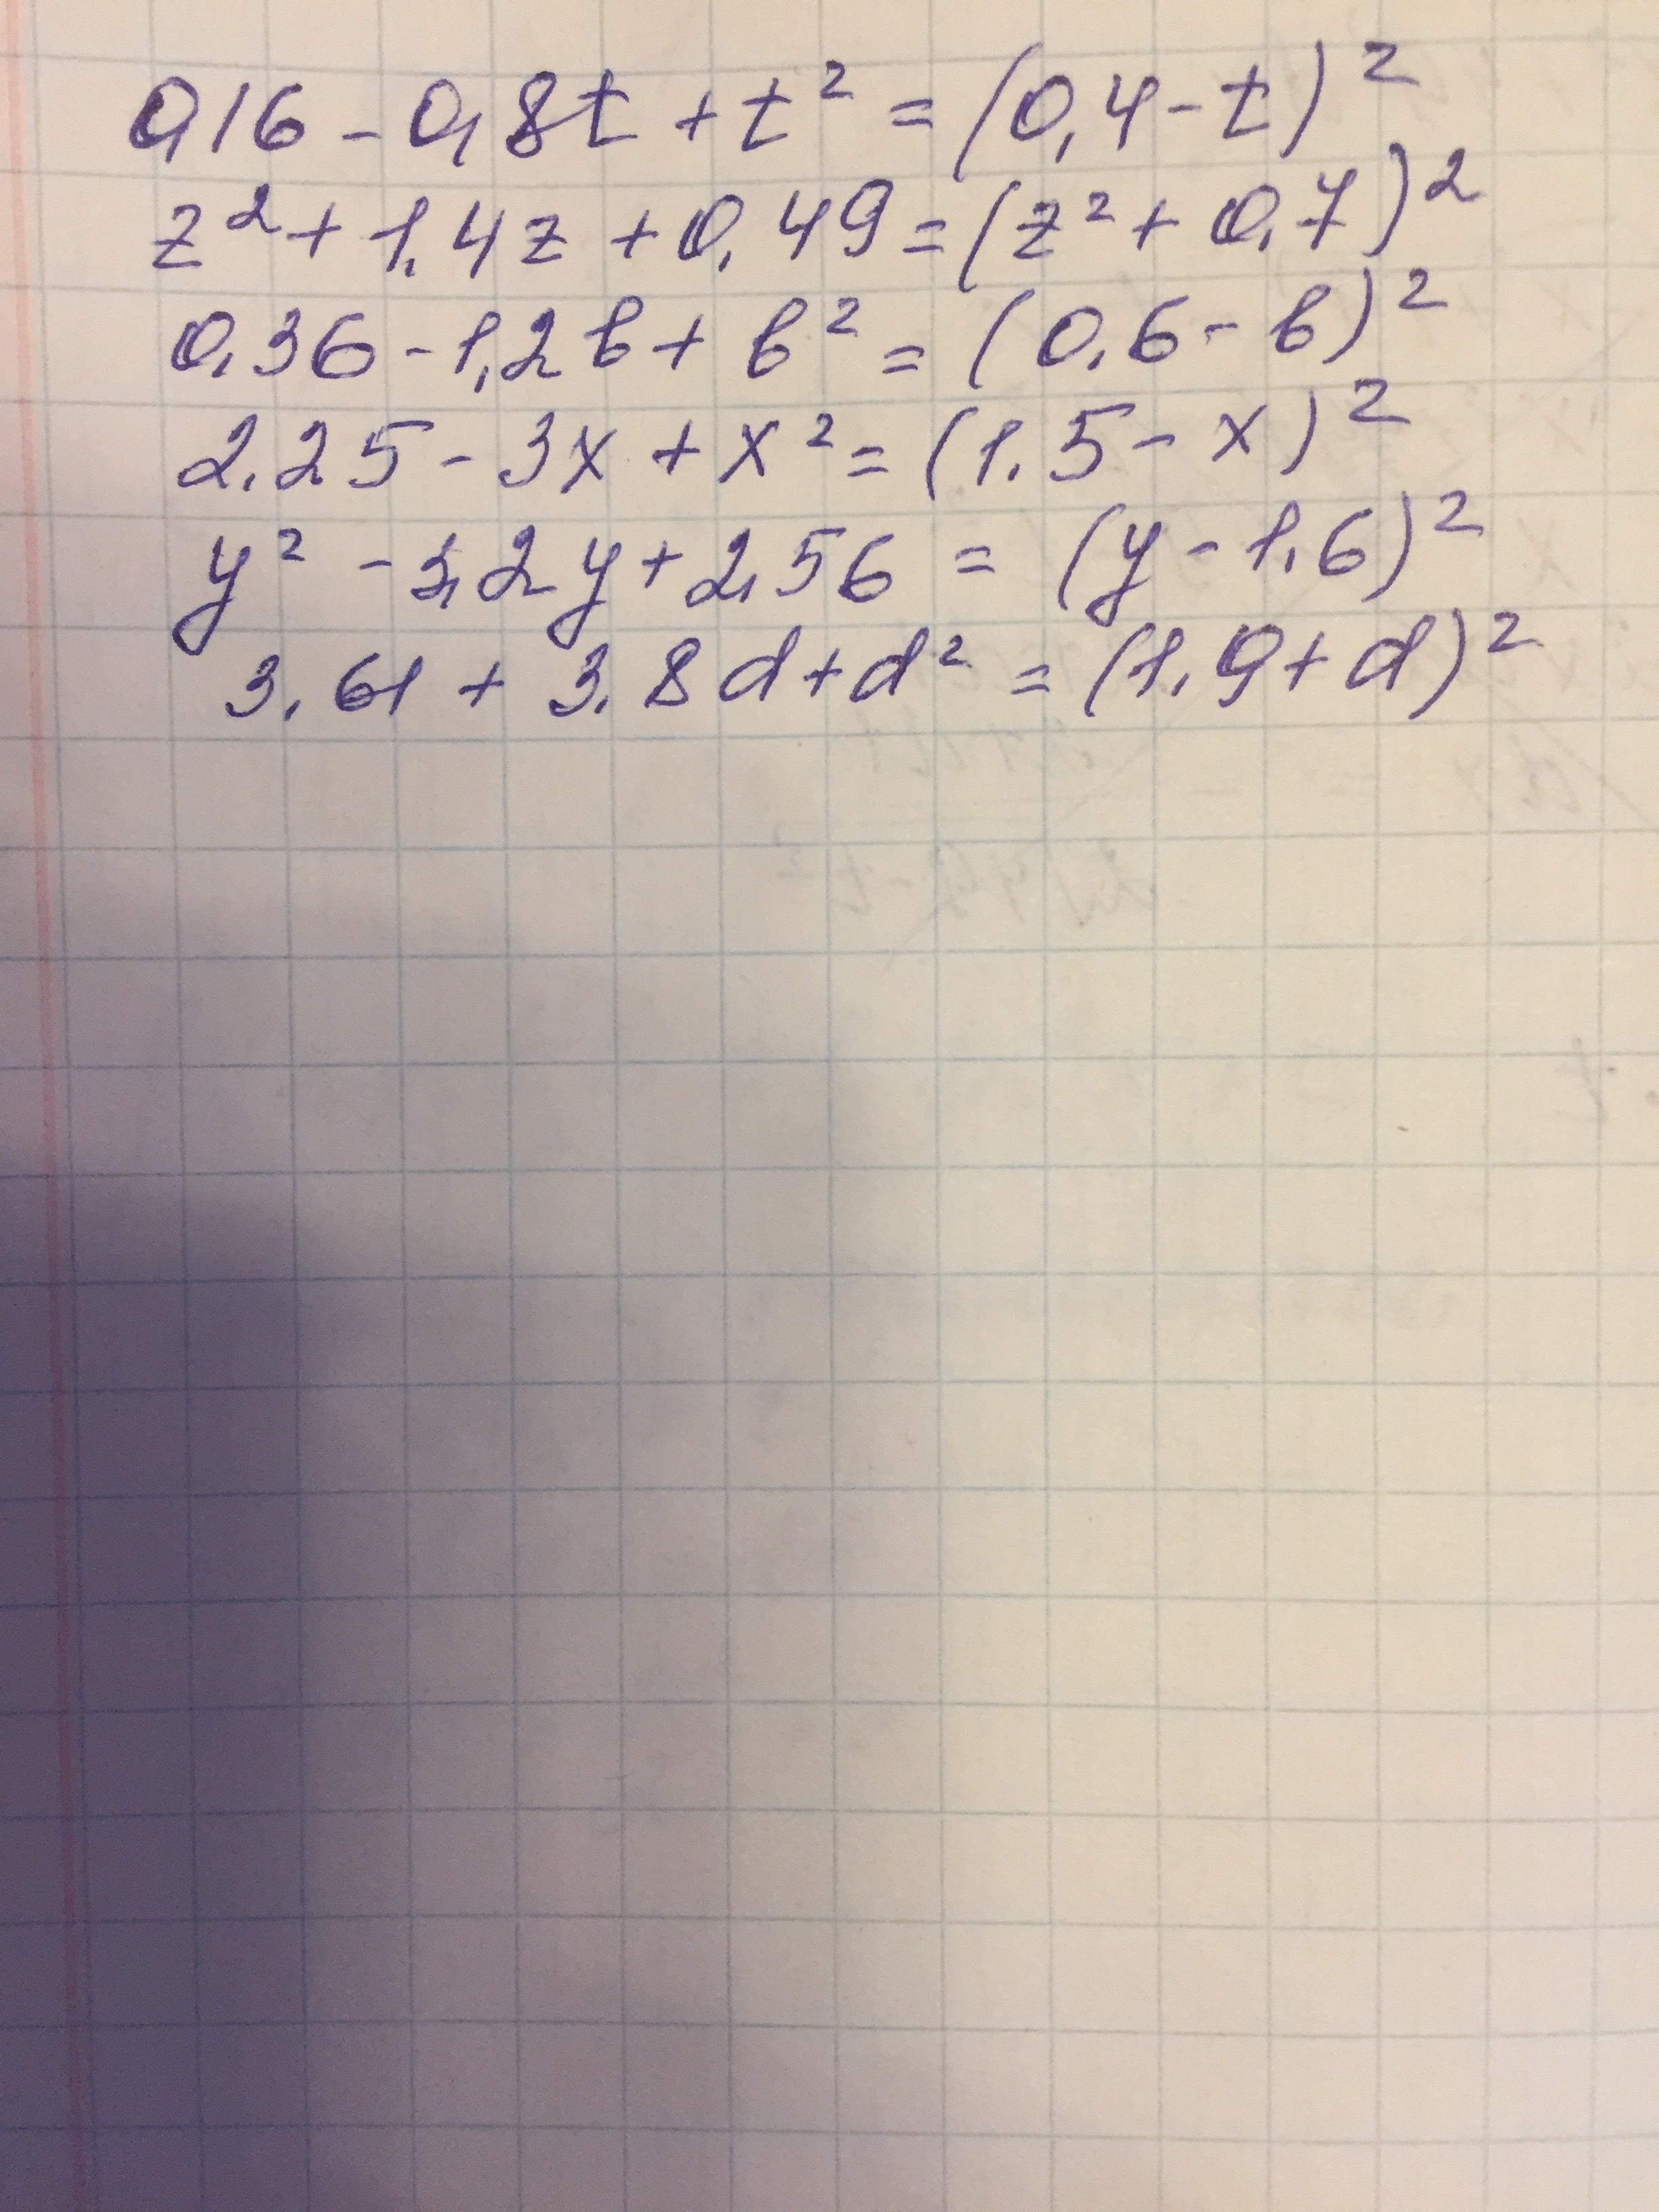 0,16 - 0,8t + t² = (0,4 - t)²
z² + 1,4z + 0,49 = (z² + 0,7)²
0,36 - 1,2b + b² = (0,6 - b)²
2,25 - 3x + x² = (1,5 - x)²
y² - 3,2y + 2,56 = (y - 1,6)²
3,61 + 3,8d + d² = (1,9 + d)²